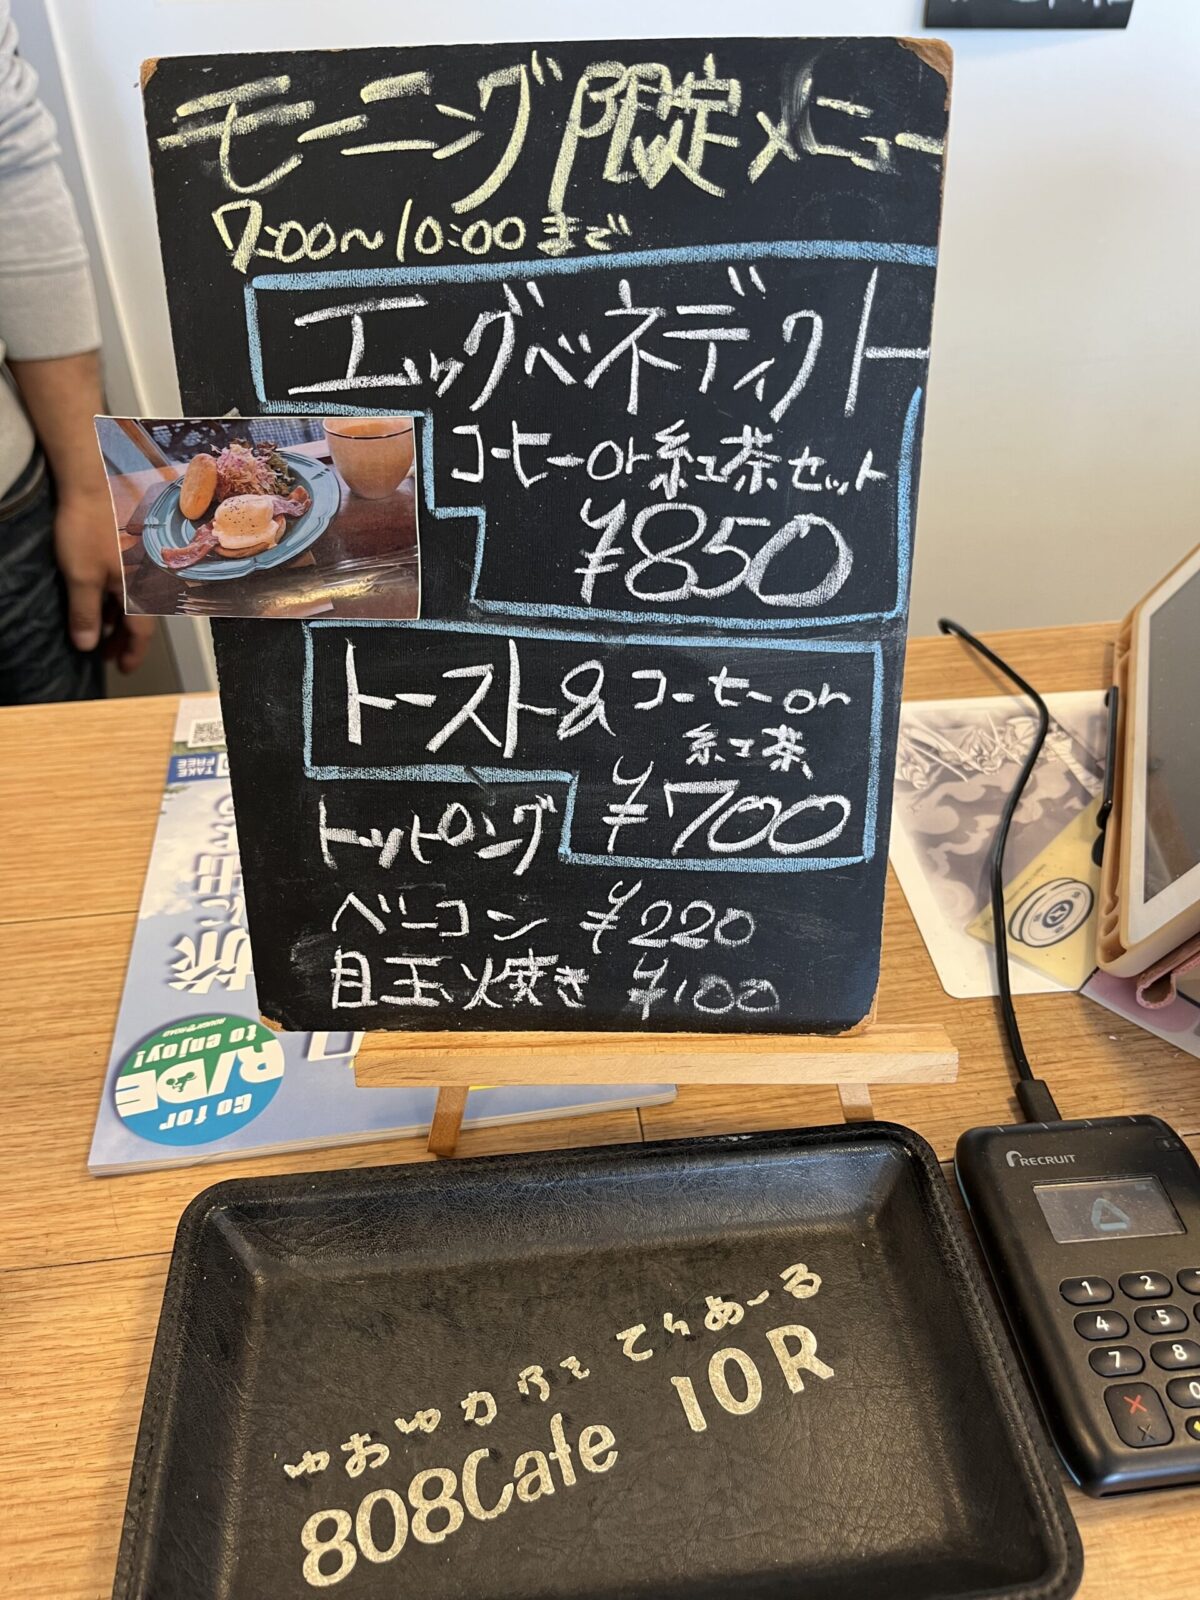 モーニング限定メニュー
7:00〜10:00まで
エッグベネディクト
コーヒーor紅茶セット
¥850
トースト& コーヒーor
紅茶
¥700
トッピング
ベーコン ¥220
目玉焼き ¥100
TAKE
FREE
ROUGH ROAD
to enjoy!
RIDE
Go for
RECRUIT
1 2
4 5
7 8
0
808Cafe 10R